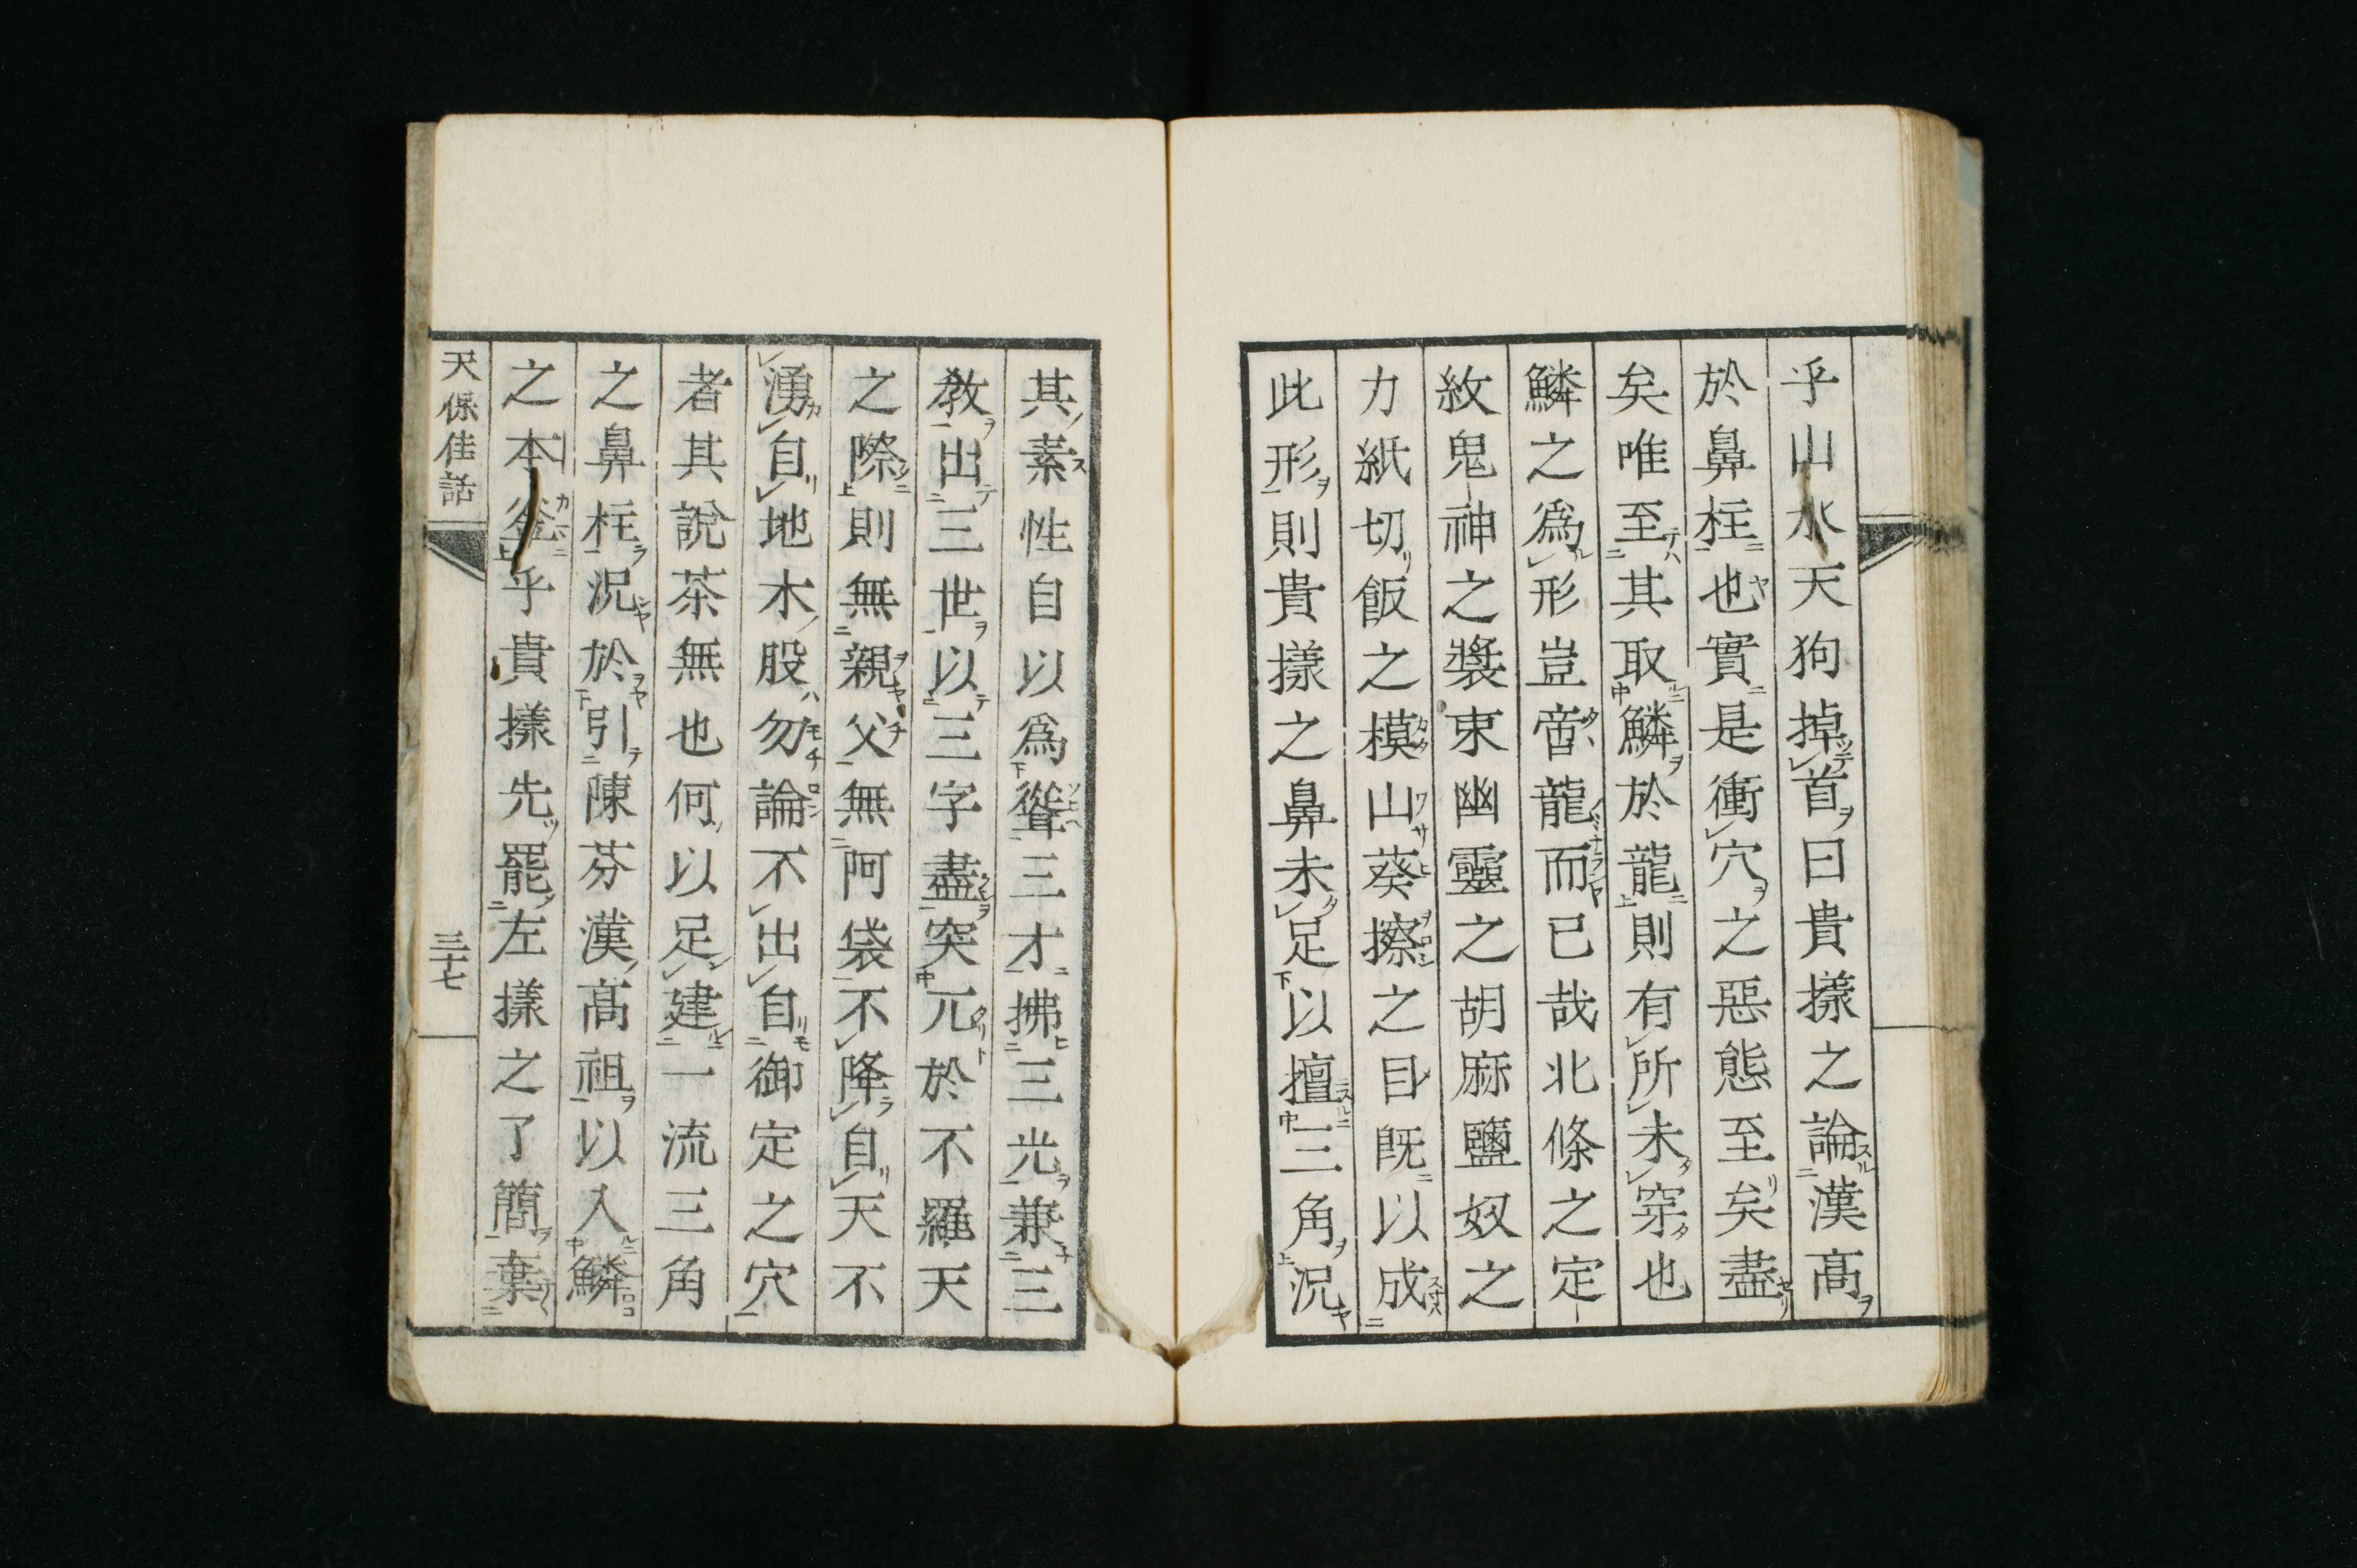 乎山水天狗掉首曰貴㨾之論漢高
於鼻柱也實是衝穴之惡態至矣盡
矣唯至其取鱗於龍則有所未穿也
鱗之爲形豈啻龍而已哉北條之定
紋鬼神之裝束幽靈之胡麻鹽奴之
力紙切飯之模山葵擦之目既以成
此形則貴㨾之鼻未足以擅三角況
其素性自以爲聳三才拂三光兼三
教出三世以三字盡突兀於不羅天
之際則無親父無阿袋不降自天不
湧自地木股勿論不出自御定之穴
者其說茶無也何以足建一流三角
之鼻柱況於引陳芬漢高祖以入鱗
之本釜乎貴㨾先罷左㨾之了簡棄
天保佳話
三十七